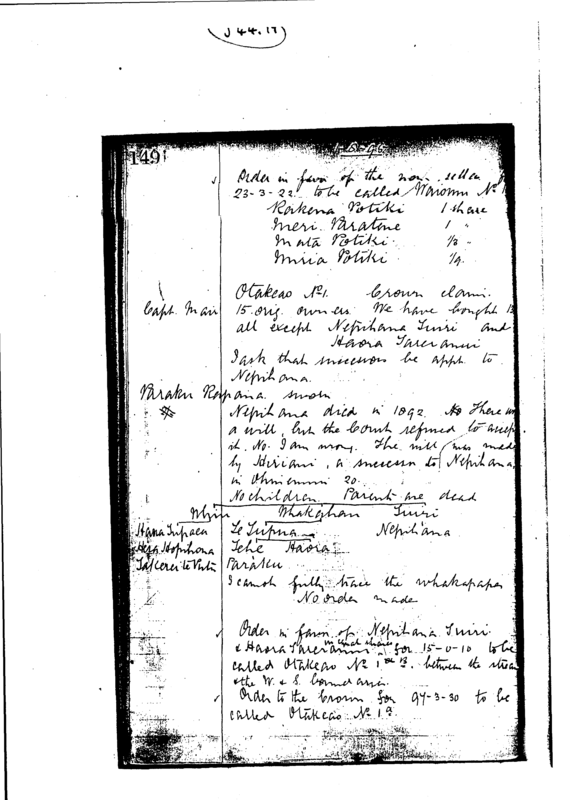 J 44.17
149
1-5-96
Order in favor of the non seller
23-3-22 to be called Waiomu No 1
Rakena Potiki 1 share
Meri Paratene 1 "
Mata Potiki 1/3 "
Miria Potiki 1/9
Otakeao No 1. Crown claim.
Capt. Mair 15 orig. owners. We have bought 13
all except Nepihana Tuiri and
Haora Tareranui
I ask that successors be appt. to
Nepihana.
Paraku Rapana sworn
Nepihana died in 1892. No There was
a will, but the Court refused to accept
it. No. I am wrong. The will was made
by Hiriani, a successor to Nepihana
in 20.
No children. Parents are dead
Whakahau Tuiri
Hana Tupaea Te Tupua Nepihana
Hera Hopihona Tehe Haora
Paraku
I cannot fully trace the whakapapa
No order made
Order in favor of Nepihana Tuiri
& Haora Tareranui in equal shares for 15-0-10 to be
called Otakeao No 1 B. between the stream
& the W. & S. boundaries.
Order to the Crown for 97-3-30 to be
called Otakeao No 1 a